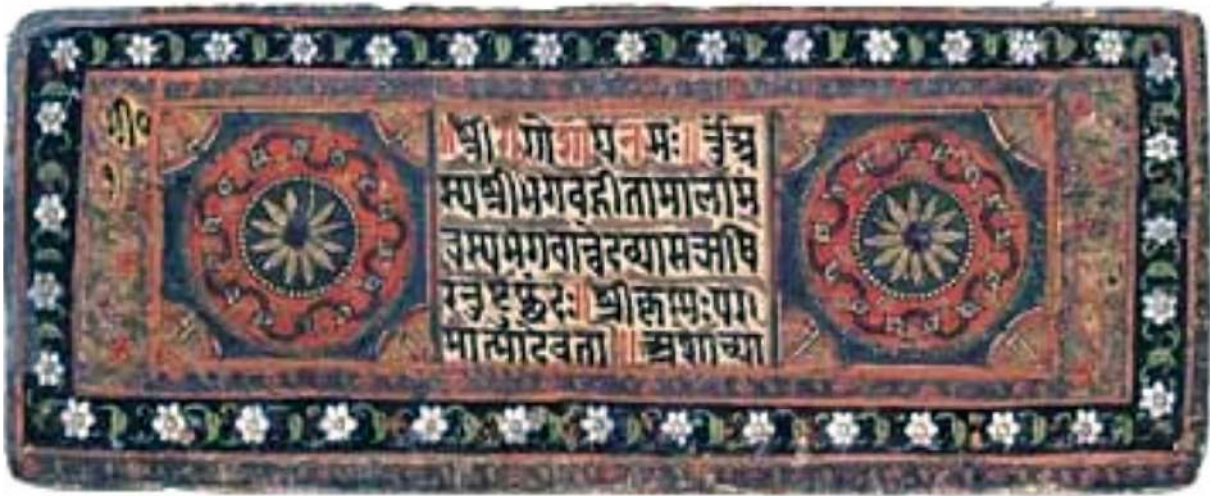 गी॰
१
॥श्रीगणेशायनमः॥ उँअ
स्यश्रीभगवद्गीतामालामं
त्रस्यभगवान्वेदव्यासऋषि
रनुष्टुप्छंदः॥ श्रीकृष्णःपर
मात्मादेवता॥ अशोच्या